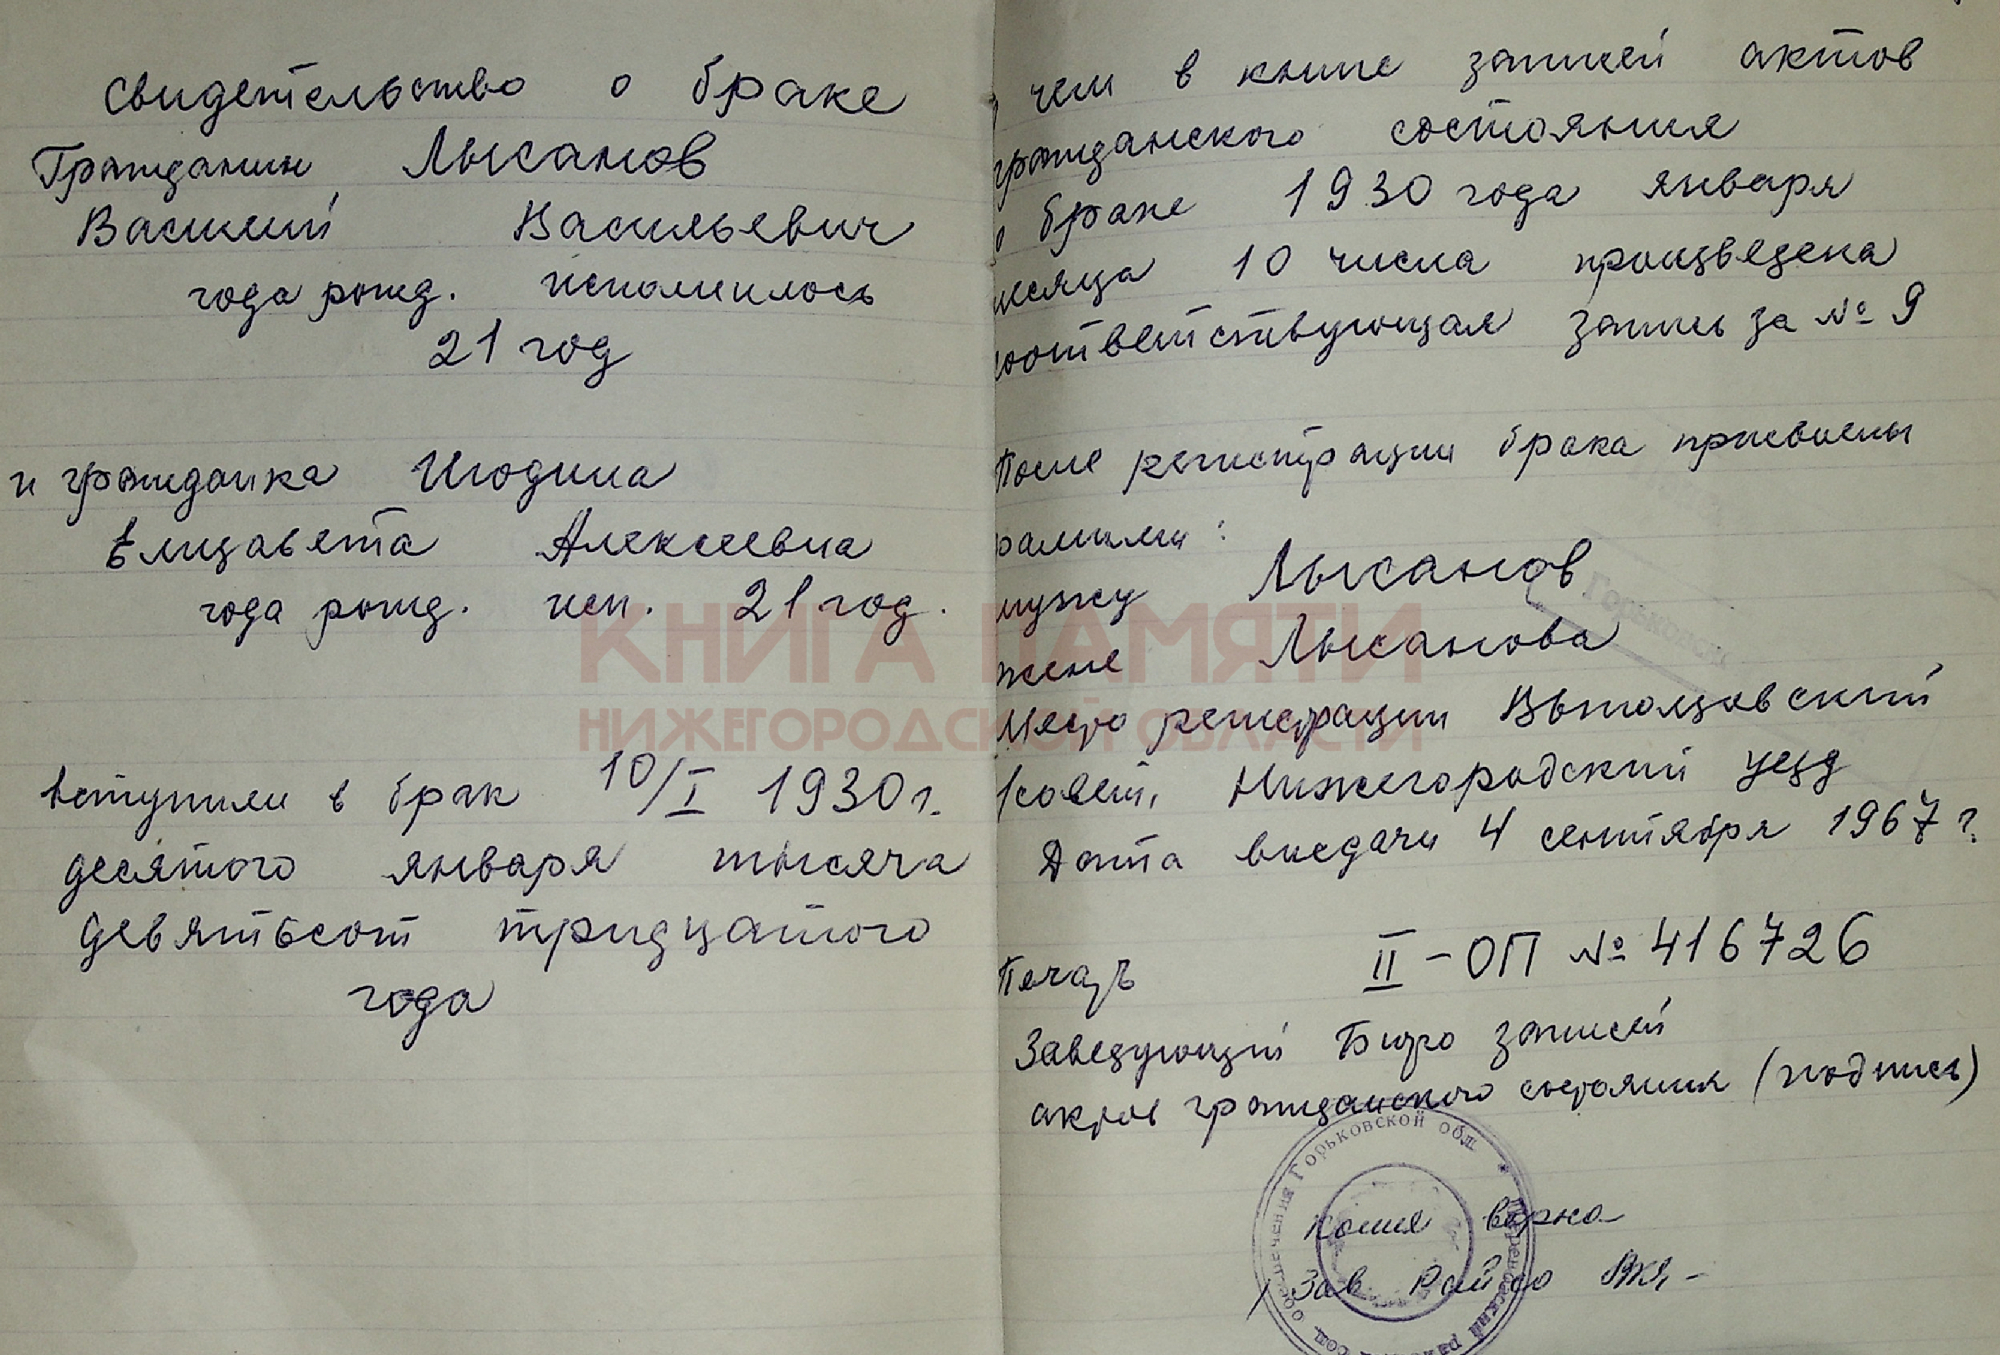 Свидетельство о браке
Гражданин Лысанов
Василий Васильевич
года рожд. исполнилось
21 год
и гражданка Июдина
Елизавета Алексеевна
года рожд. исп. 21 год.
вступили в брак 10/I 1930 г.
десятого января тысяча
девятьсот тридцатого
года
о чем в книге записей актов
гражданского состояния
о браке 1930 года января
месяца 10 числа произведена
соответствующая запись за № 9
После регистрации брака присвоены
фамилии:
мужу Лысанов
жене Лысанова
Место регистрации
совет, Нижегородский уезд
Дата выдачи 4 сентября 1967 г.
II-ОП № 416726
Печать
Заведующий Бюро записей
актов гражданского состояния (подпись)
Копия верна
Зав Райсо
КНИГА ПАМЯТИ
НИЖЕГОРОДСКОЙ ОБЛАСТИ
Горьковской обл.